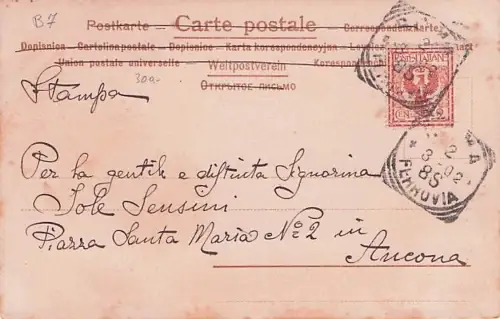 B7
Postkarte — Carte postale — Correspondenzkarte
Dopisnice — Cartolina postale — Dopisnice — Karta korespondencyjna — Lev
Union postale universelle — Weltpostverein — Korespon
300.-
ОТКРЫТОЕ ПИСЬМО
Stampa
POSTE ITALIANE
2
8S
* 3 2 02
8S
FERROVIA
Per la gentile e distinta Signorina
Iole Sensini
Piazza Santa Maria No 2 in
Ancona